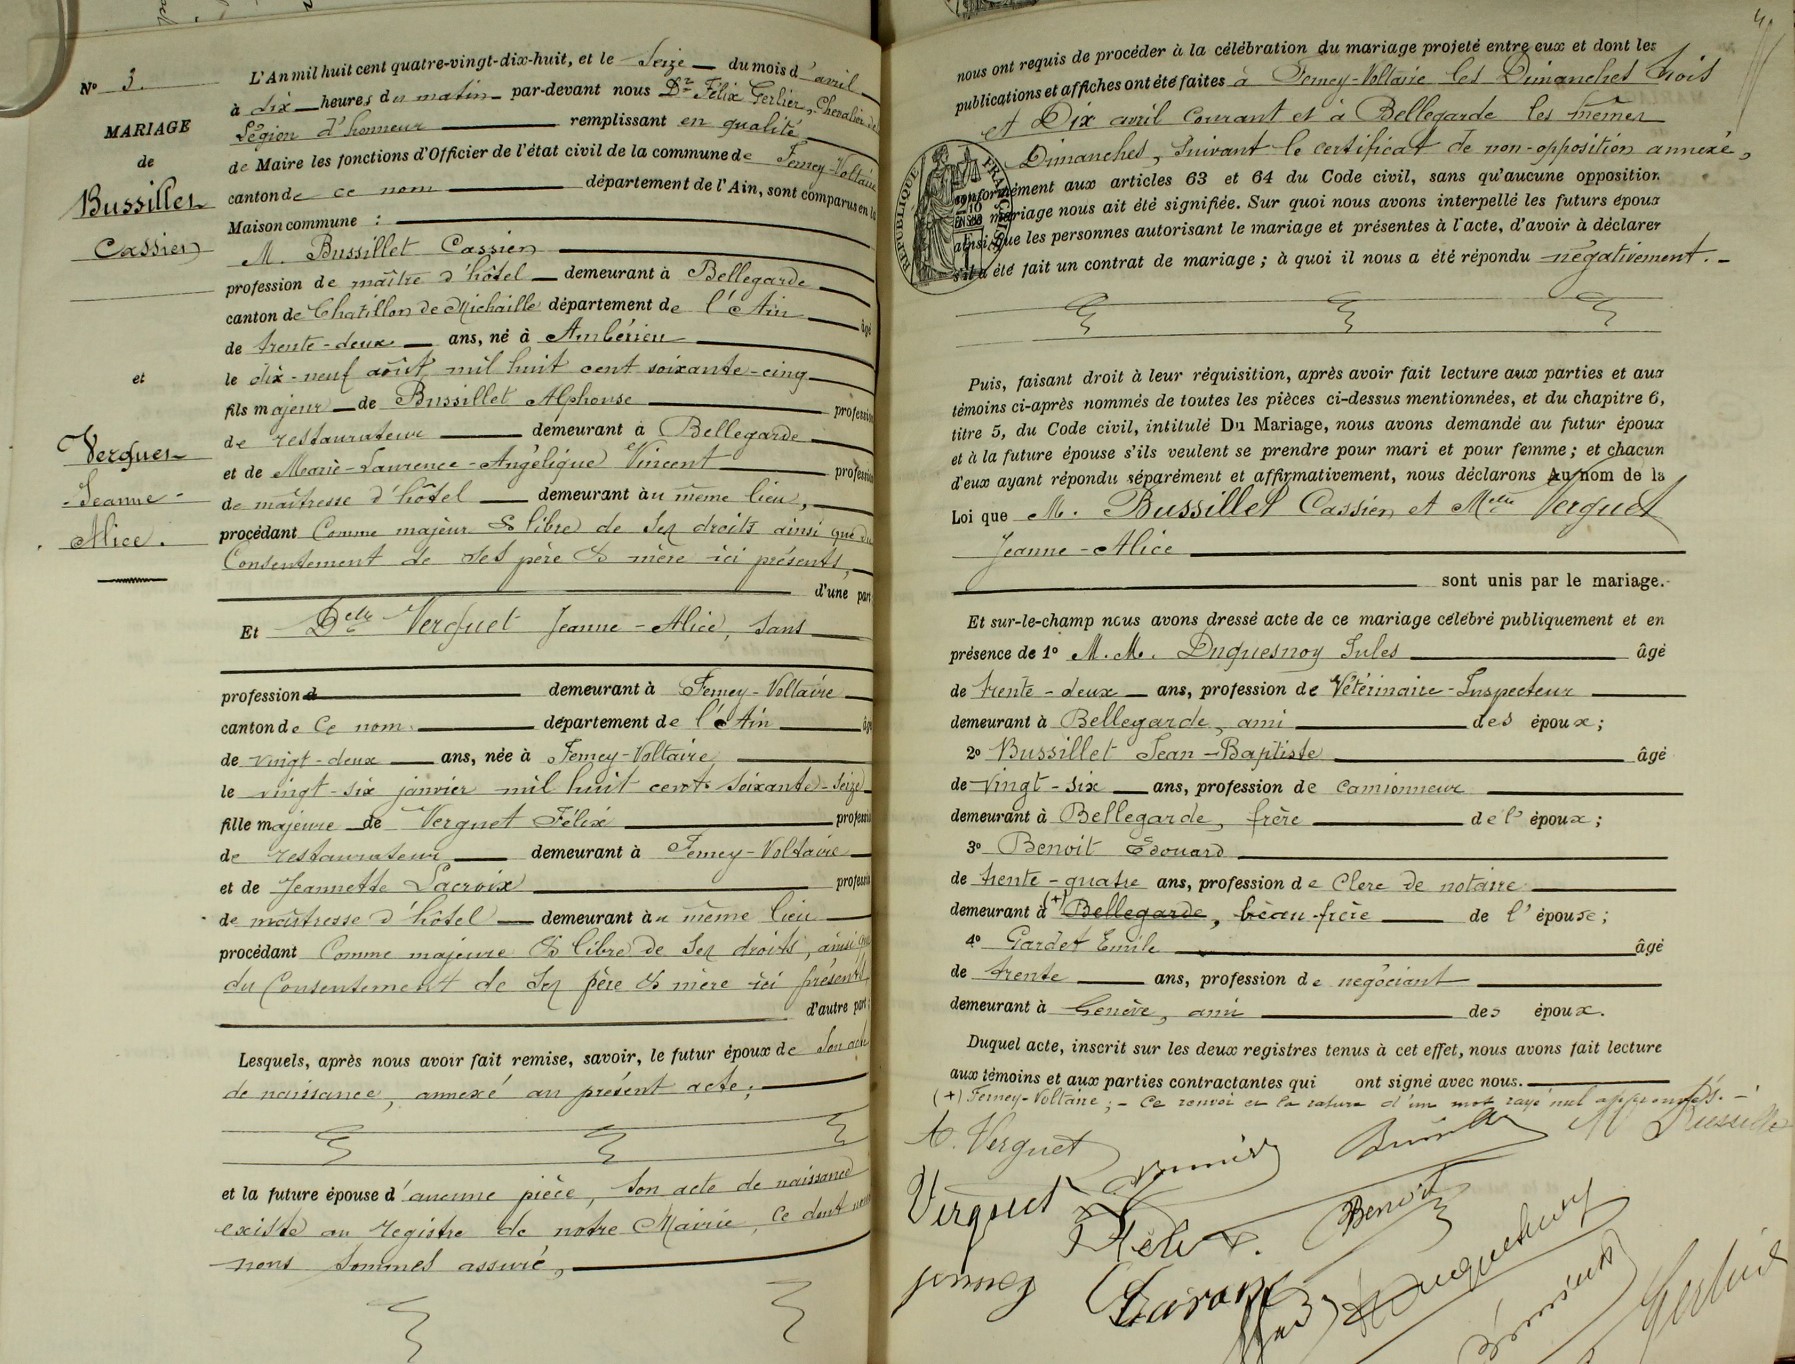 Nº 3.
MARIAGE
de
Bussillet
Cassien
et
Verguet
Jeanne
Alice.
L'An mil huit cent quatre-vingt-dix-huit, et le Seize du mois d'avril
à dix heures du matin par-devant nous Dr Félix Gerlier, Chevalier de
Légion d'honneur remplissant en qualité
de Maire les fonctions d'Officier de l'état civil de la commune de Ferney-Voltaire
canton de ce nom département de l'Ain, sont comparus en la
Maison commune :
M. Bussillet Cassien
profession de maître d'hôtel demeurant à Bellegarde
canton de Chatillon de Michaille département de l'Ain âgé
de trente-deux ans, né à Ambérieu
le dix-neuf août mil huit cent soixante-cinq
fils majeur de Bussillet Alphonse profession
de restaurateur demeurant à Bellegarde
et de Marie-Laurence-Angélique Vincent profession
de maîtresse d'hôtel demeurant au même lieu,
procédant Comme majeur & libre de ses droits ainsi que du
Consentement de ses père & mère ici présents,
d'une part
Et Delle Verguet Jeanne-Alice, sans
profession demeurant à Ferney-Voltaire
canton de Ce nom département de l'Ain âgé
de vingt-deux ans, née à Ferney-Voltaire
le vingt-six janvier mil huit cent soixante-seize
fille majeure de Verguet Félix profession
de restaurateur demeurant à Ferney-Voltaire
et de Jeannette Lacroix profession
de maîtresse d'hôtel demeurant au même lieu
procédant Comme majeure & libre de ses droits, ainsi que
du Consentement de ses père & mère ici présents
d'autre part;
Lesquels, après nous avoir fait remise, savoir, le futur époux de Son acte
de naissance, annexé au présent acte;
et la future épouse d'aucune pièce, son acte de naissance
existe au registre de notre Mairie, ce dont nous
nous sommes assuré,
nous ont requis de procéder à la célébration du mariage projeté entre eux et dont les
publications et affiches ont été faites à Ferney-Voltaire les Dimanches trois
et Dix avril courant et à Bellegarde les mêmes
Dimanches, suivant le certificat de non-opposition annexé,
conformément aux articles 63 et 64 du Code civil, sans qu'aucune opposition
mariage nous ait été signifiée. Sur quoi nous avons interpellé les futurs époux
ainsi que les personnes autorisant le mariage et présentes à l'acte, d'avoir à déclarer
s'il a été fait un contrat de mariage ; à quoi il nous a été répondu négativement.
RÉPUBLIQUE FRANÇAISE
Puis, faisant droit à leur réquisition, après avoir fait lecture aux parties et aux
témoins ci-après nommés de toutes les pièces ci-dessus mentionnées, et du chapitre 6,
titre 5, du Code civil, intitulé Du Mariage, nous avons demandé au futur époux
et à la future épouse s'ils veulent se prendre pour mari et pour femme ; et chacun
d'eux ayant répondu séparément et affirmativement, nous déclarons Au nom de la
Loi que M. Bussillet Cassien et Melle Verguet
Jeanne-Alice
sont unis par le mariage.
Et sur-le-champ nous avons dressé acte de ce mariage célébré publiquement et en
présence de 1º M.M. Duquesnoy Jules âgé
de trente-deux ans, profession de Vétérinaire-Inspecteur
demeurant à Bellegarde, ami des époux;
2º Bussillet Jean-Baptiste âgé
de vingt-six ans, profession de camionneur
demeurant à Bellegarde, frère de l'époux;
3º Benoit Edouard
de trente-quatre ans, profession de Clerc de notaire
demeurant à (+) Bellegarde, beau-frère de l'épouse;
4º Gardet Emile âgé
de trente ans, profession de négociant
demeurant à Genève, ami des époux.
Duquel acte, inscrit sur les deux registres tenus à cet effet, nous avons fait lecture
aux témoins et aux parties contractantes qui ont signé avec nous.
(+) Ferney-Voltaire ; - Ce renvoi et la rature d'un mot rayé nul approuvés. -
A. Verguet
Verguet
Félix
Benoit
Gerlier